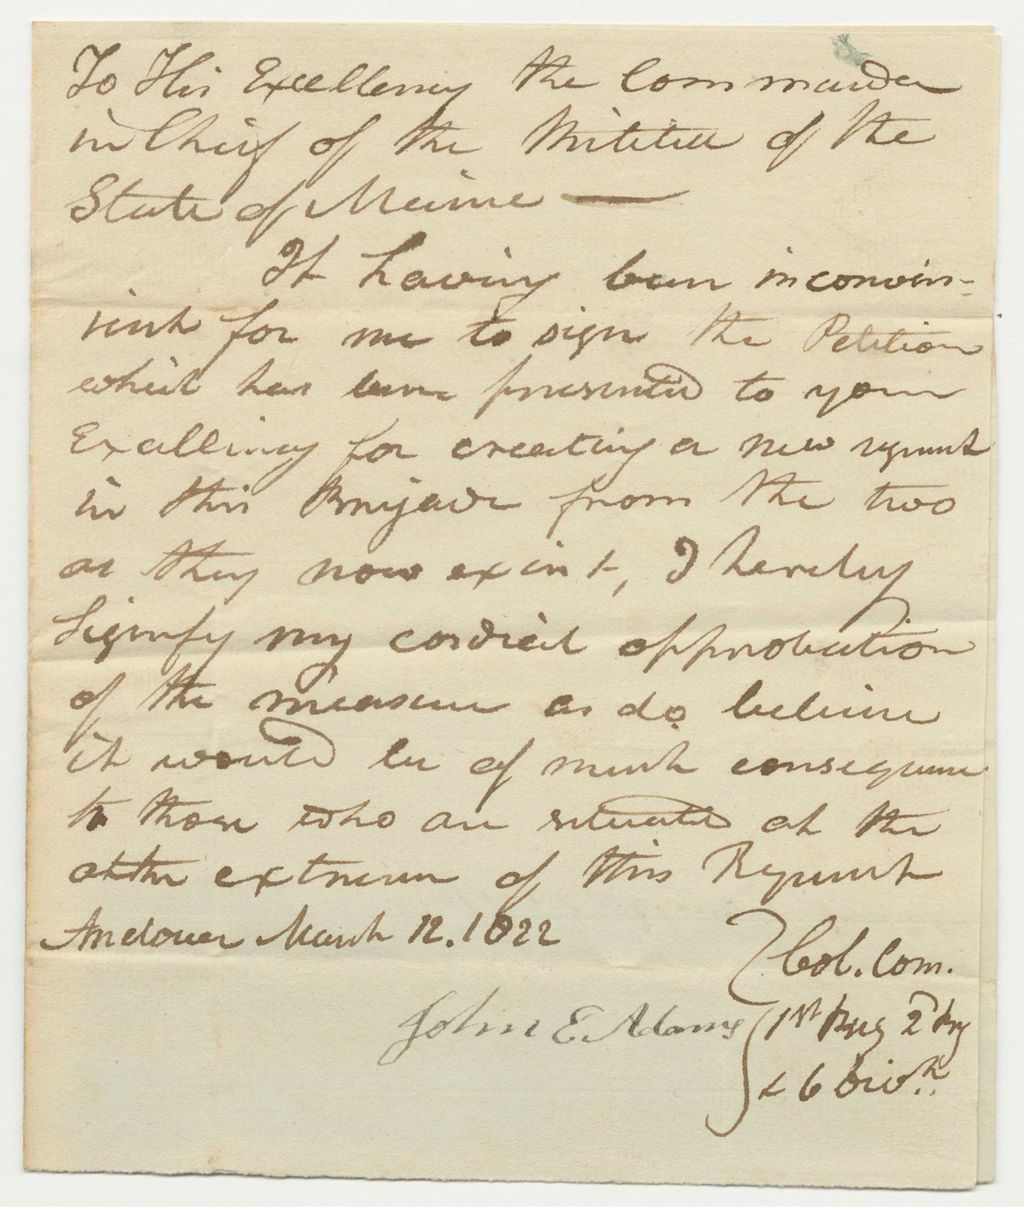 To His Excellency the Commander
in Chief of the Militia of the
State of Maine —
It having been inconven-
ient for me to sign the Petition
which has been presented to your
Excellency for creating a new regiment
in this Brigade from the two
as they now exist, I hereby
Signify my cordial approbation
of the measure as do believe
it would be of much consequence
to those who are situated at the
at the extreme of this Regiment
Andover March 12. 1822
Col. Com.
John E. Adams 1st Reg 2d Brig
& 6 Divn.